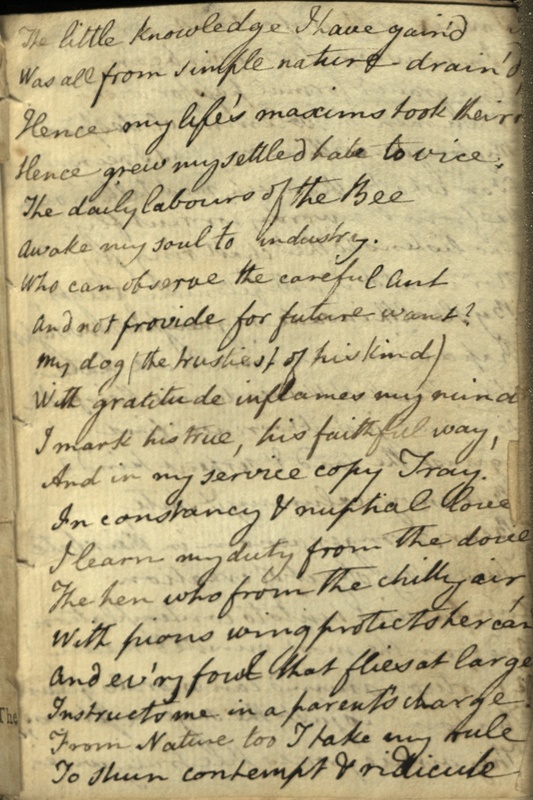 The little knowledge I have gain'd
Was all from simple nature drain'd,
Hence my life's maxims took their
Hence grew my settled hate to vice.
The daily labours of the Bee
Awake my soul to industry.
Who can observe the careful Ant
And not provide for future want?
My dog (the trustiest of his kind)
With gratitude inflames my mind
I mark his true, his faithful way,
And in my service copy Tray.
In constancy & nuptial love
I learn my duty from the dove
The hen who from the chilly air
With pious wing protects her
And ev'ry fowl that flies at large
Instructs me in a parent's charge.
From Nature too I take my rule
To shun contempt & ridicule
The